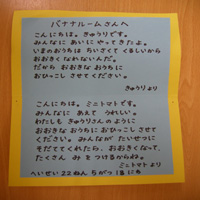 バナナルームさんへ
こんにちは。きゅうりです。
みんなに あいに やってきたよ。
いまの おうちは ちいさくて くるしいから
おおきくなれないんだ。
だから おおきな おうちに
ひっこし させてください。
きゅうりより
こんにちは。ミニトマトです。
みんなに あえて うれしい。
わたしも きゅうりさんの ように
おおきな おうちに ひっこし させて
ください。みんなが たいせつに
そだててくれたら、おおきくなって、
たくさん み を つけるからね。
ミニトマトより
へいせい22ねん 5がつ 18にち